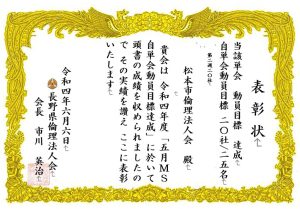 表彰状
当該単会 動員目標 達成
自単会動員目標 二〇社/二五名
第二週二〇社
松本市倫理法人会 殿
貴会は 令和四年度「五月MS
自単会動員目標達成」に於いて
頭書の成績を収められましたの
で その実績を讃え ここに表彰
いたします
令和四年六月六日
長野県倫理法人会
会長 市川 英治